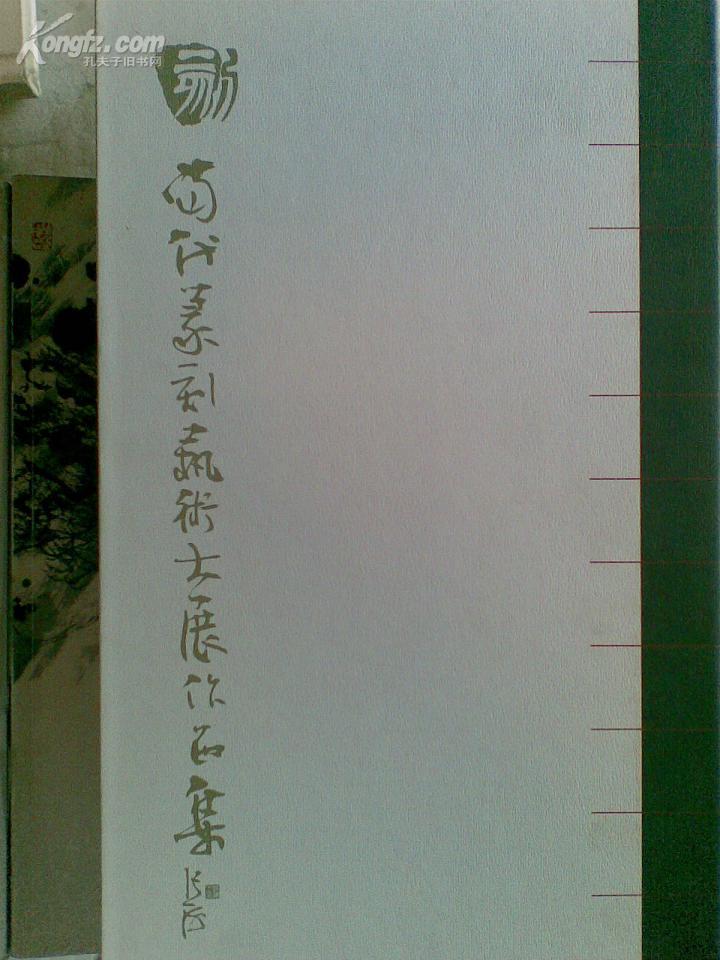 Kongfz.com
孔夫子旧书网
當代篆刻藝術大展作品集